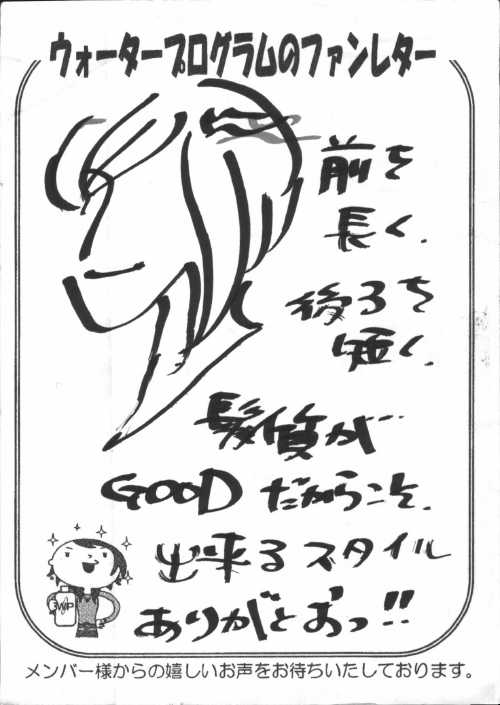 ウォータープログラムのファンレター
前を
長く、
後ろを
短く、
髪質が
GOOD だからこそ、
出来るスタイル
WP
ありがとおっ!!
メンバー様からの嬉しいお声をお待ちいたしております。